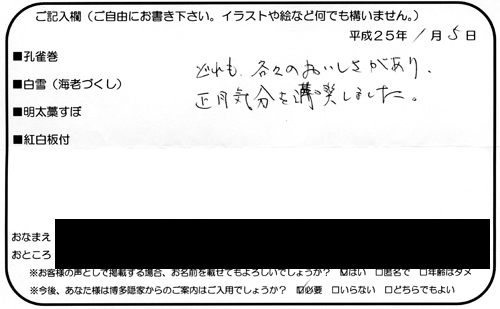 ご記入欄（ご自由にお書き下さい。イラストや絵など何でも構いません。）
平成25年 1月 5日
■孔雀巻
■白雪（海老づくし）
■明太藁すぼ
■紅白板付
どれも、各々のおいしさがあり、
正月気分を満喫しました。
おなまえ
おところ
※お客様の声として掲載する場合、お名前を載せてもよろしいでしょうか？ ☑はい □匿名で □年齢はダメ
※今後、あなた様は博多隠家からのご案内はご入用でしょうか？ ☑必要 □いらない □どちらでもよい